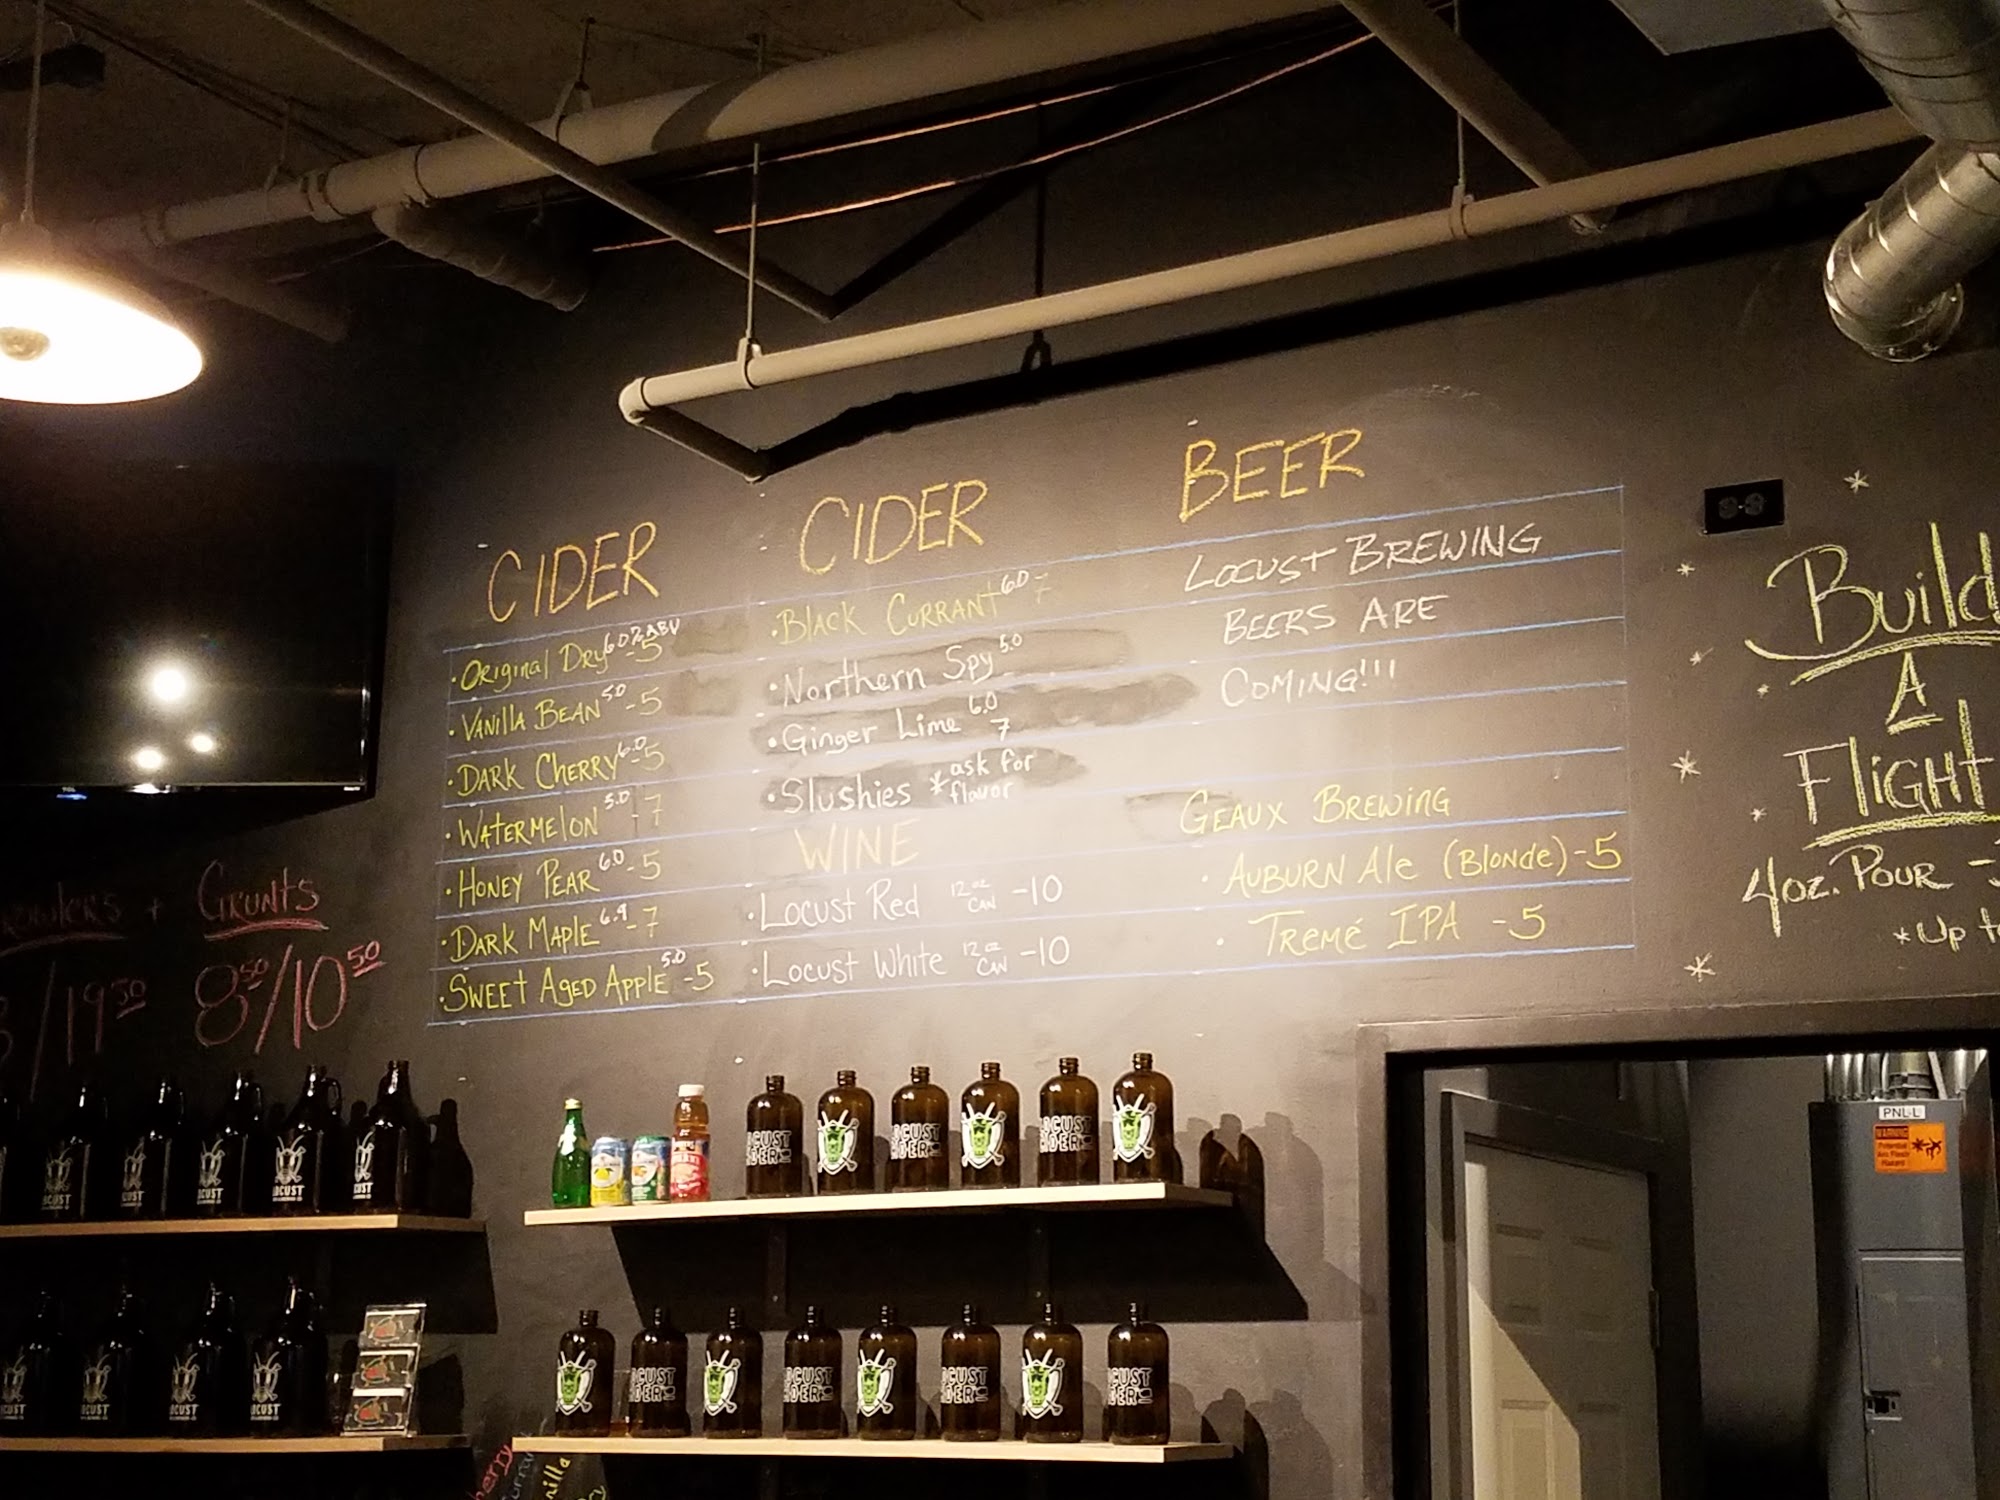 CIDER
• Original Dry 6.0% ABV -5
• Vanilla Bean 5.0 -5
• Dark Cherry 6.0 -5
• Watermelon 5.0 -7
• Honey Pear 6.0 -5
• Dark Maple 6.9 -7
• Sweet Aged Apple 5.0 -5
CIDER
• Black Currant 6.0 7
• Northern Spy 5.0
• Ginger Lime 6.0 7
• Slushies *ask for
flavor
WINE
• Locust Red 12 oz CAN -10
• Locust White 12 oz CAN -10
BEER
Locust Brewing
Beers Are
Coming!!!
Geaux Brewing
• Auburn Ale (Blonde) -5
• Tremé IPA -5
Build
A
Flight
4oz. Pour
*Up to
+ Grunts
/19 50
8 50/10 50
PNL-L
WARNING
LOCUST
CIDER